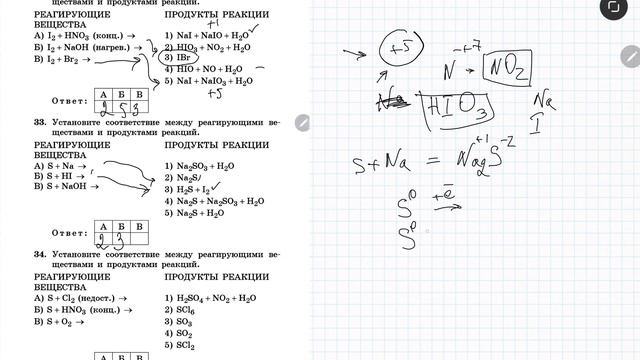 ществами и продуктами реакций.
РЕАГИРУЮЩИЕ ВЕЩЕСТВА
ПРОДУКТЫ РЕАКЦИИ
+1
А) I₂ + HNO₃ (конц.) →
Б) I₂ + NaOH (нагрев.) →
В) I₂ + Br₂ →
1) NaI + NaIO + H₂O
2) HIO₃ + NO₂ + H₂O
3) IBr
4) HIO + NO + H₂O
5) NaI + NaIO₃ + H₂O
+5
Ответ:
А Б В
2 5 3
33. Установите соответствие между реагирующими ве-
ществами и продуктами реакций.
РЕАГИРУЮЩИЕ ВЕЩЕСТВА
ПРОДУКТЫ РЕАКЦИИ
А) S + Na →
Б) S + HI →
В) S + NaOH →
1) Na₂SO₃ + H₂O
2) Na₂S
3) H₂S + I₂
4) Na₂S + Na₂SO₃ + H₂O
5) Na₂S + H₂O
Ответ:
А Б В
2 3
34. Установите соответствие между реагирующими ве-
ществами и продуктами реакций.
РЕАГИРУЮЩИЕ ВЕЩЕСТВА
ПРОДУКТЫ РЕАКЦИИ
А) S + Cl₂ (недост.) →
Б) S + HNO₃ (конц.) →
В) S + O₂ →
1) H₂SO₄ + NO₂ + H₂O
2) SCl₆
3) SO₃
4) SO₂
5) SCl₂
А Б В
→ +5
N → NO₂
HIO₃
Na
I
S + Na = Na₂⁺¹S⁻²
S⁰ +e̅ →
S⁰